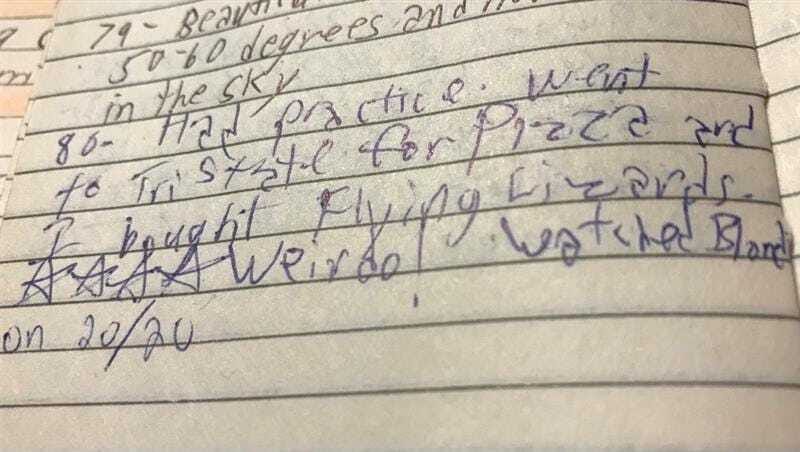 79- Beautiful
50-60 degrees and
in the sky
80- Had practice. Went
to Tri State for Pizza and
I bought Flying Lizards.
☆☆☆☆ Weirdo! Watched Blondi
on 20/20